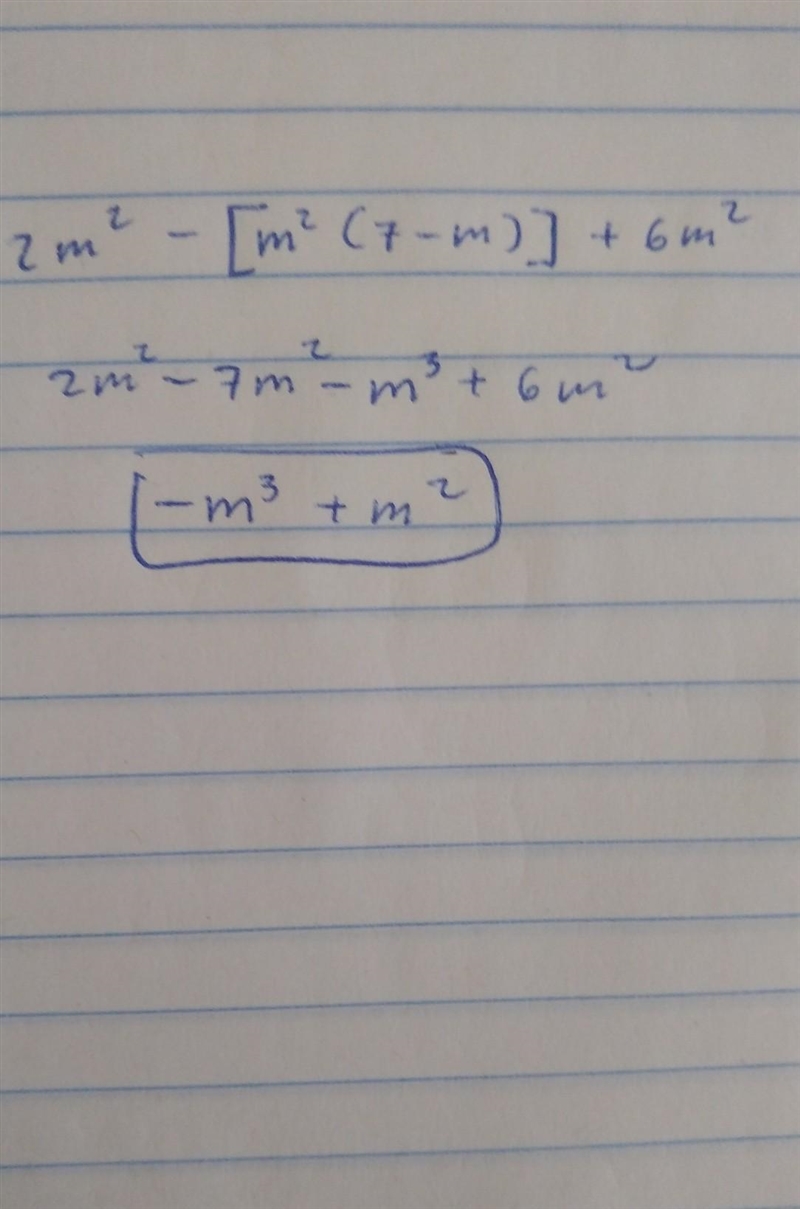 2m² - [m² (7 - m)] + 6m²
2m² - 7m² - m³ + 6m²
-m³ + m²